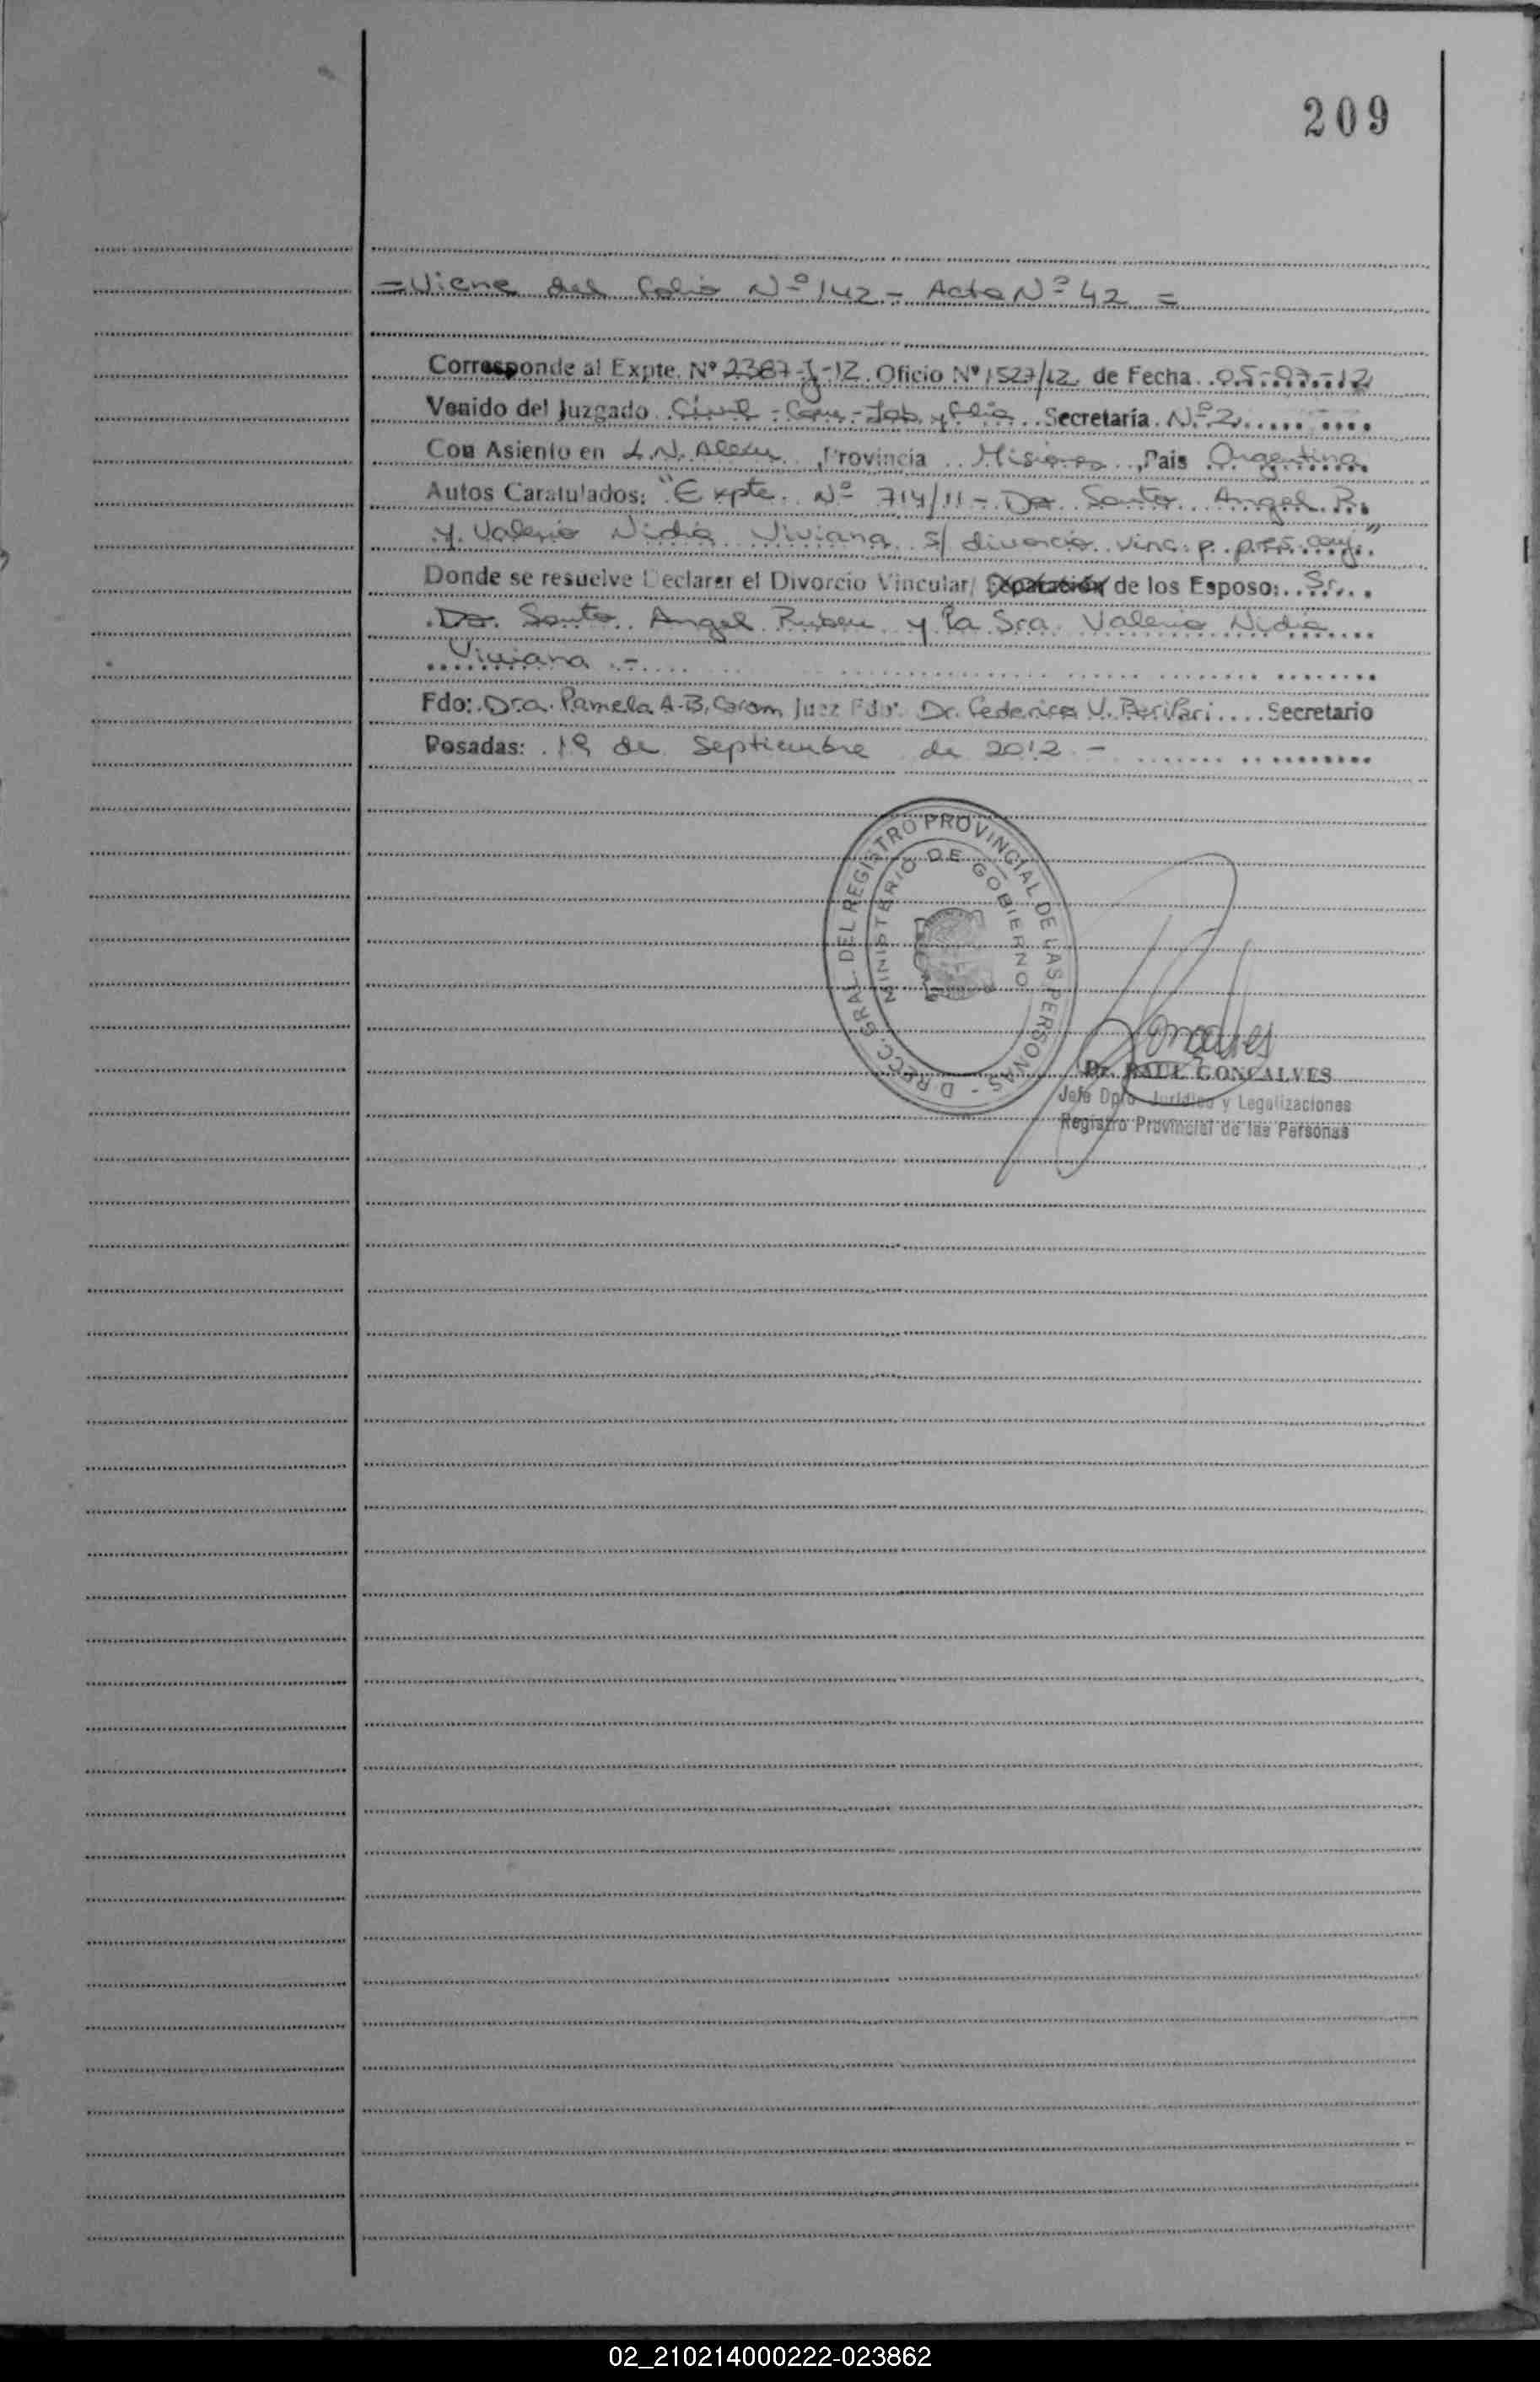 209
= Viene del Folio Nº 142 - Acta Nº 42 =
Corresponde al Expte. Nº 2387-J-12. Oficio Nº 1527/12 de Fecha 05-07-12
Venido del Juzgado Civil - Com - Lab y Flia. Secretaría Nº 2
Con Asiento en L.N. Alem, Provincia Misiones, País Argentina
Autos Caratulados: "Expte. Nº 714/11 - Do Santo Angel R.
y Valerio Nidia Viviana s/ divorcio vinc. p. pres. conj."
Donde se resuelve Declarar el Divorcio Vincular/ Separación de los Esposo: Sr.
Do Santo Angel Ruben y la Sra. Valerio Nidia
Viviana.-
Fdo: Dra. Pamela A-B. Juez Fdo: Dr. Federico V. Secretario
Posadas: 19 de Septiembre de 2012 -
DIRECC. GRAL. DEL REGISTRO PROVINCIAL DE LAS PERSONAS -
MINISTERIO DE GOBIERNO
Goncalves
Dr. RAUL GONCALVES
Jefe Dpto. Jurídico y Legalizaciones
Registro Provincial de las Personas
02_210214000222-023862